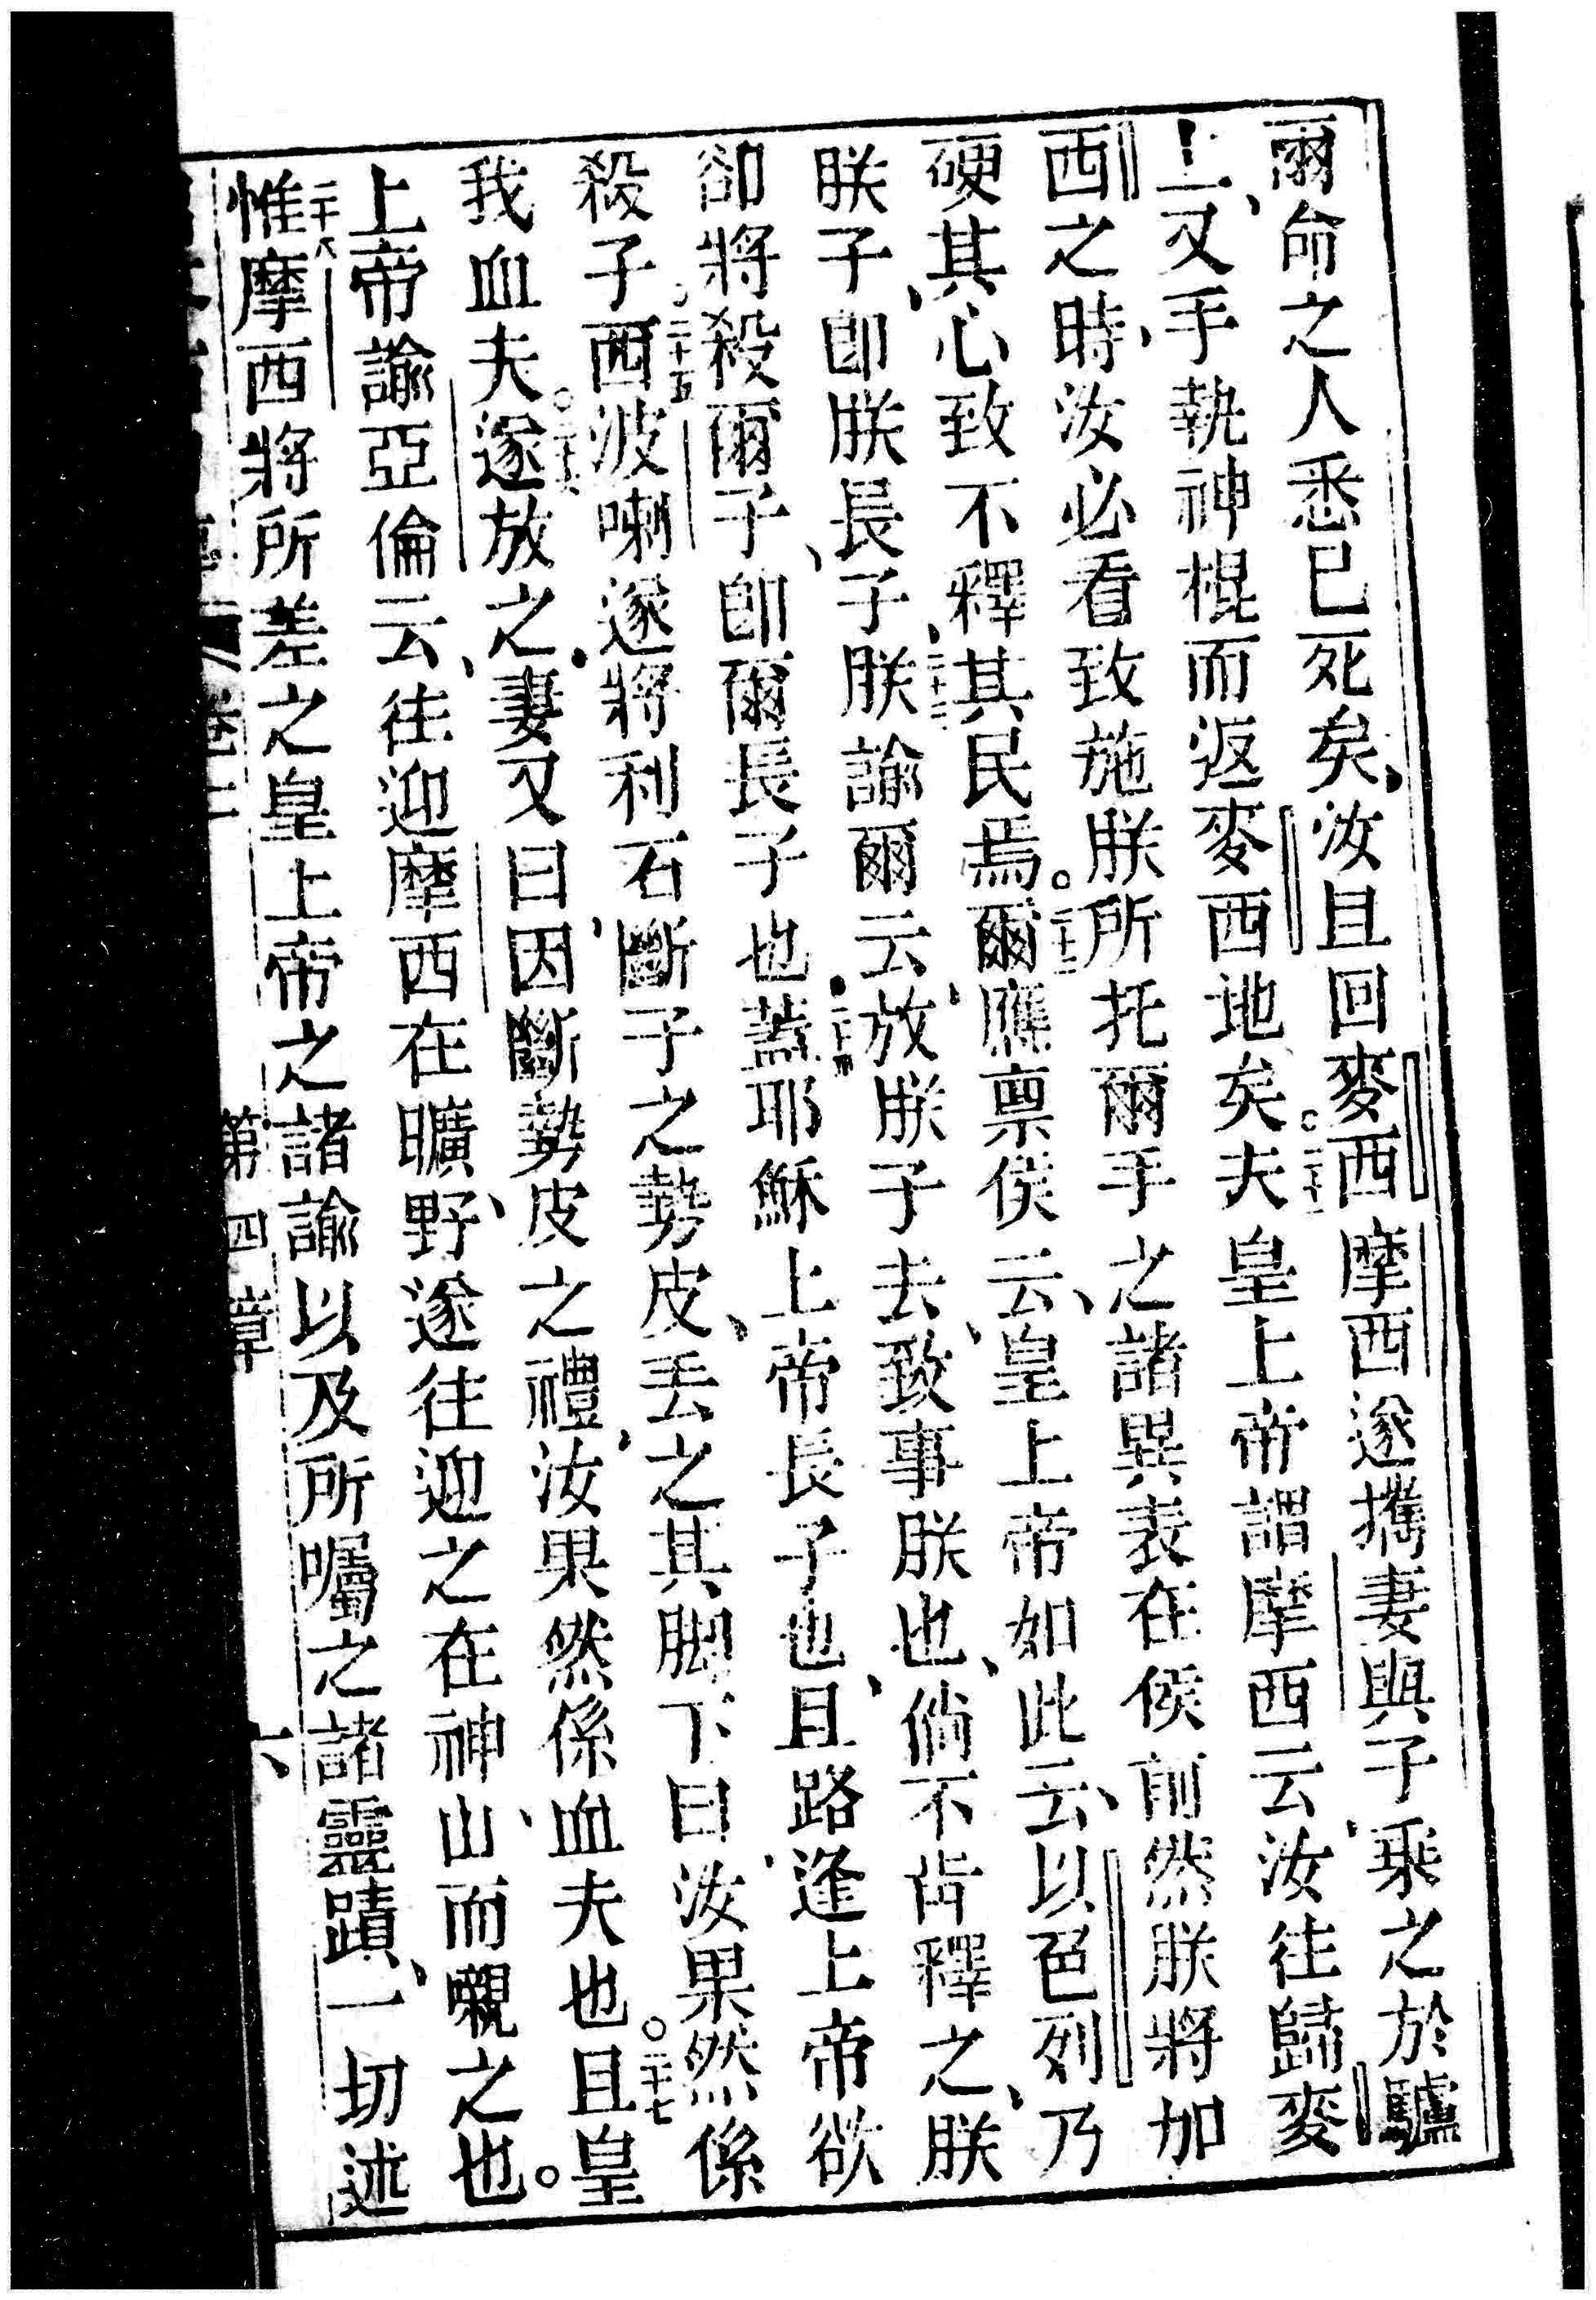 爾命之人悉已死矣、汝且回麥西摩西遂攜妻與子、乘之於驢
上、又手執神棍而返麥西地矣。二十一夫皇上帝謂摩西云、汝往歸麥
西之時、汝必看致施朕所托爾手之諸異表在侯前然朕將加
硬其心致不釋其民焉。二十二爾應稟侯云、皇上帝如此云、以色列乃
朕子、即朕長子、二十三朕諭爾云、放朕子去、致事朕也、倘不肯釋之、朕
卻將殺爾子、即爾長子也。二十四蓋耶穌上帝長子也、且路逢上帝欲
殺子、二十五西波喇遂將利石、斷子之勢皮、丟之其脚下曰、汝果然係
我血夫。二十六遂放之、妻又曰因斷勢皮之禮、汝果然係血夫也。二十七且皇
上帝諭亞倫云、往迎摩西在曠野、遂往迎之在神山、而嚫之也。
二十八惟摩西將所差之皇上帝之諸諭以及所囑之諸靈蹟、一切述
卷二 第四章 六